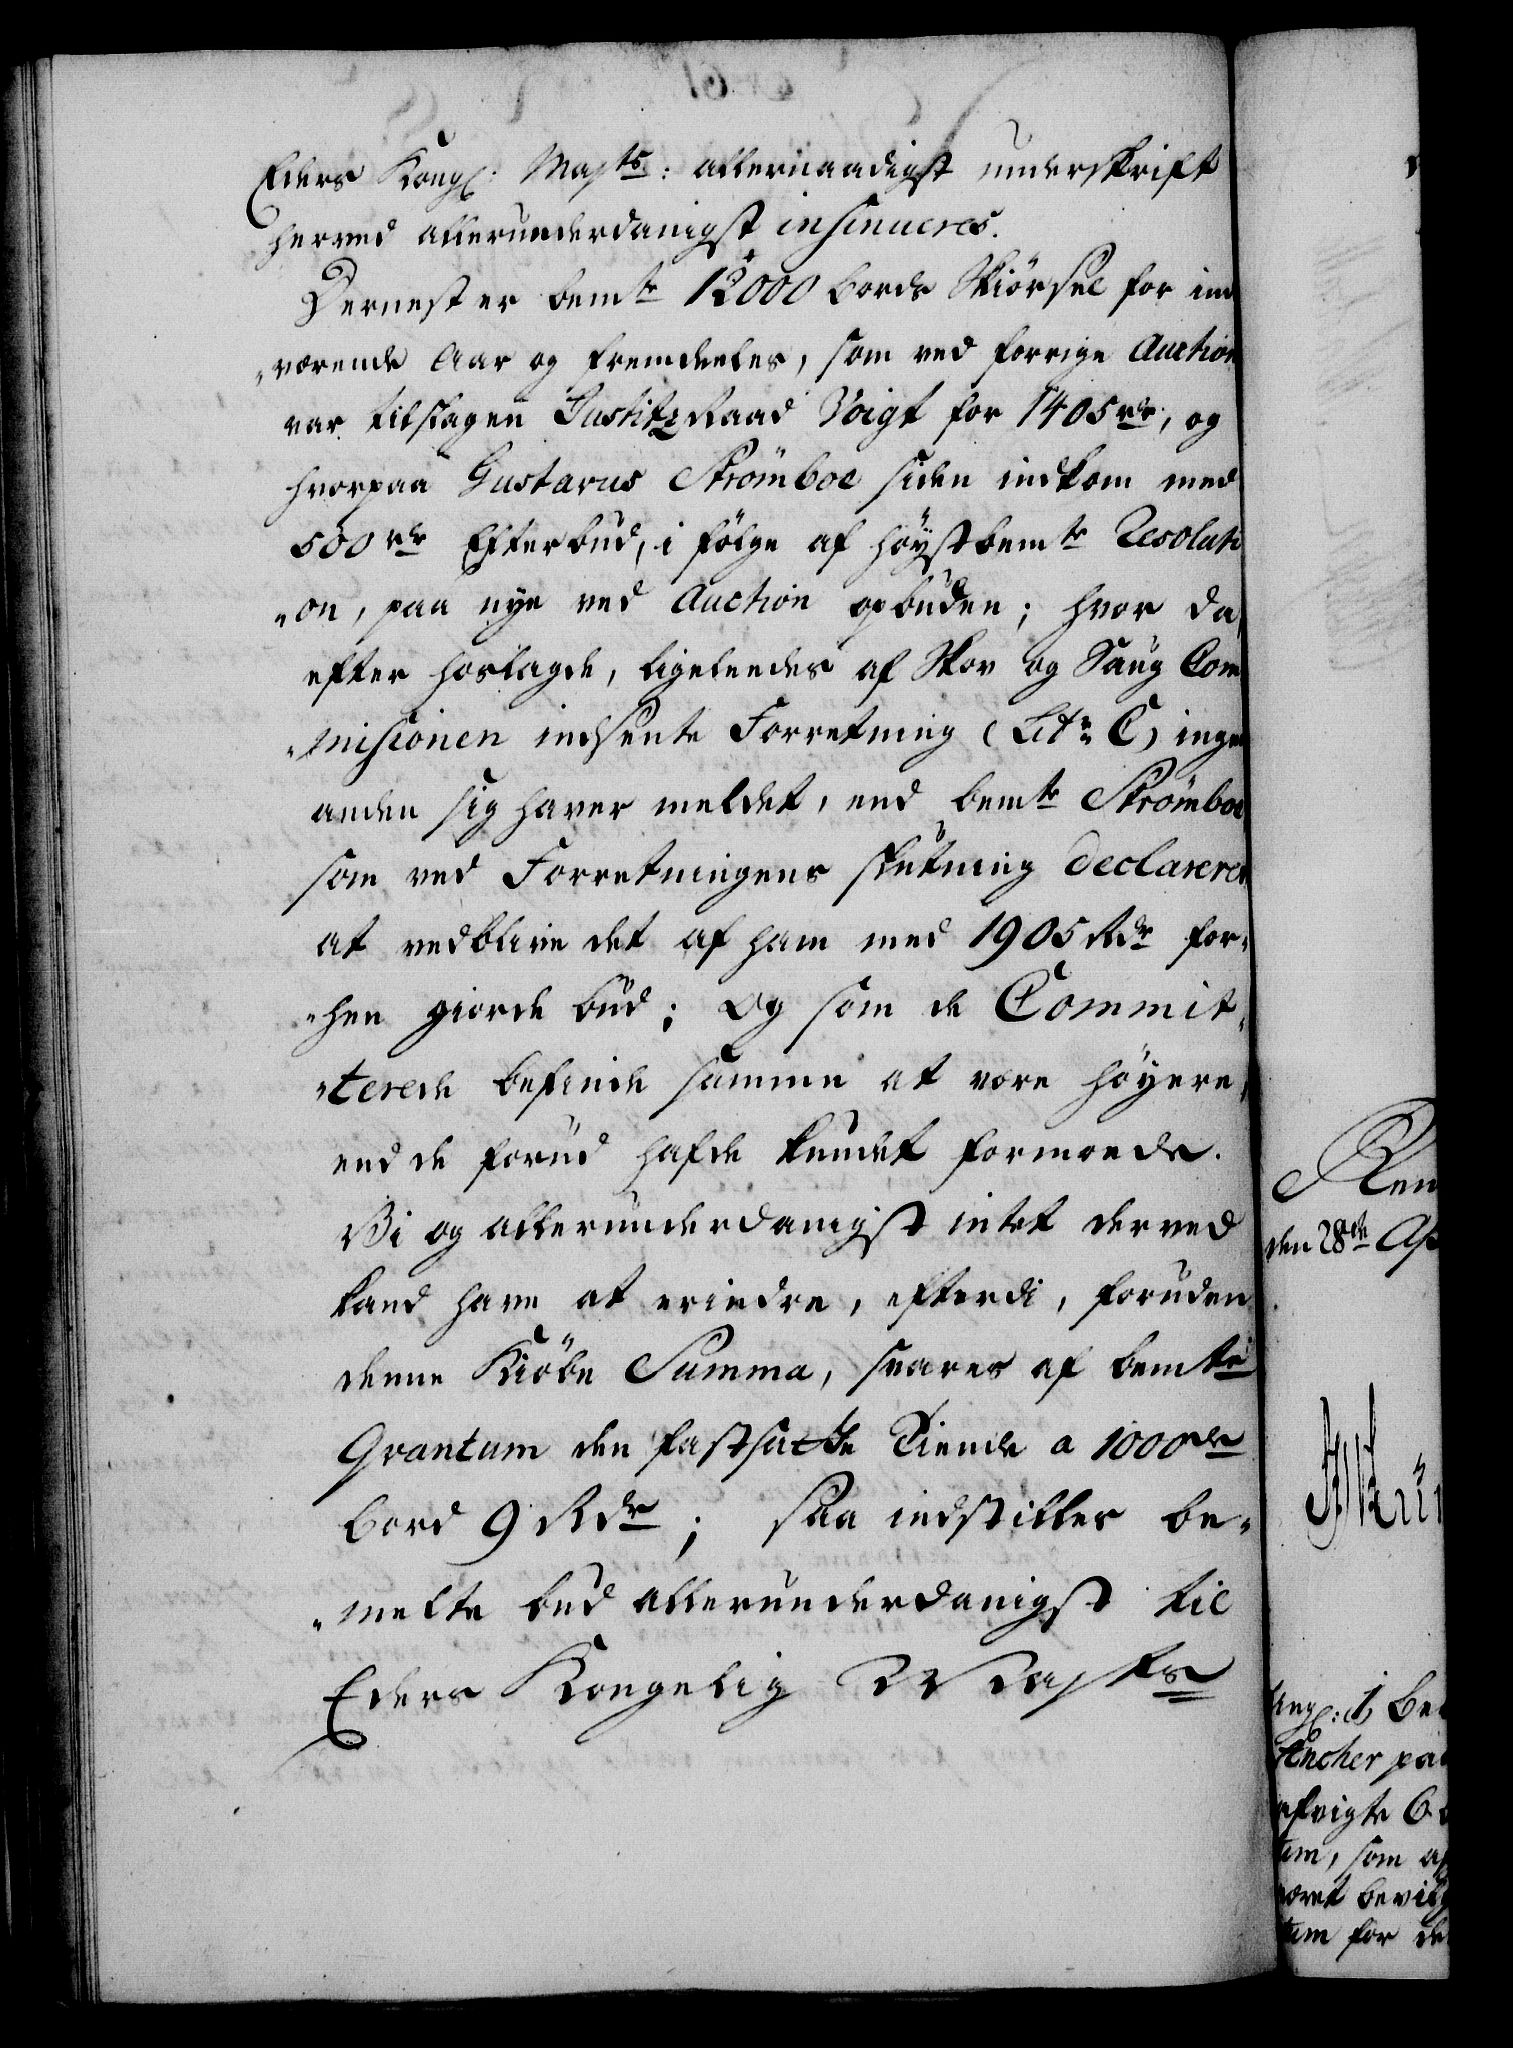 Eders Kongl: Majts: allernaadigst underskrift
herved allerunderdanigst insinueres.
Dernest er bemte 12000 bords Skiörsel for ind
„værende Aar og fremdeeles, som ved forrige Auction
var tilslagen Justitz Raad Voigt for 1405 rdr, og
hvorpaa Gustavus Strömboe siden indkom med
500 rdr Efterbud, i fölge af höystbemte Resoluti
„on, paa nye ved Auction opbuden; hvor da
efter hoslagde, ligeleedes af Skov og Saug Com
„misionen indsente Forretning (Litr: C) ingen
anden sig haver meldet, end bemte Strömboe
som ved Forretningens slutning declarerer
at vedblive det af ham med 1905 Rdr for„
„hen giorde bud; Og som de Commit„
„terede befinde summen at være höyere,
end de forud hafde kundet formoede.
Vi og allerunderdanigst intet derved
kand have at erindre, efterdi, foruden
denne Kiöbe Summa, svares af bemte
Qvantum den fastsatte Tiende a 1000de
bord 9 Rdr; saa indstilles be„
„melte bud allerunderdanigst til
Eders Kongelig Mayts
Ren
den 28de Ap
Ang: 1) Be